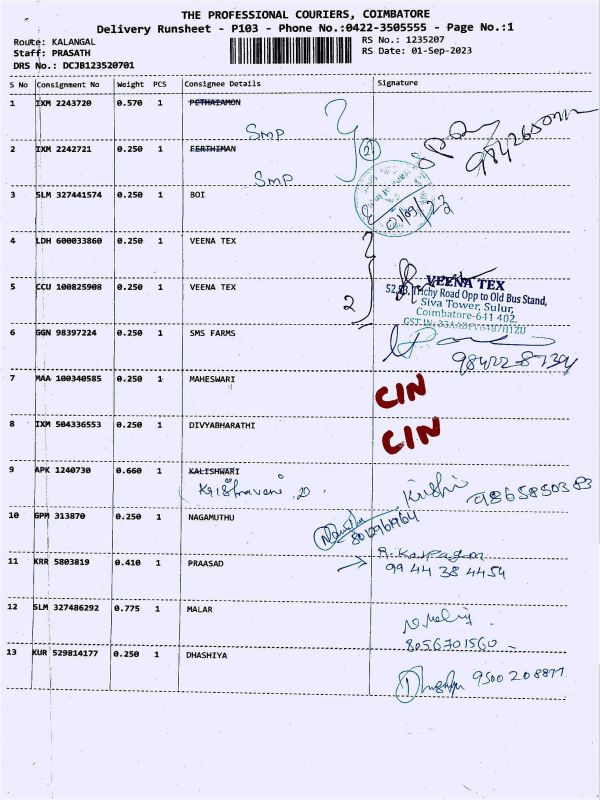 THE PROFESSIONAL COURIERS, COIMBATORE
Delivery Runsheet - P103 - Phone No.:0422-3505555 - Page No.:1
Route: KALANGAL
RS No.: 1235207
Staff: PRASATH
RS Date: 01-Sep-2023
DRS No.: DCJB123520701
S No Consignment No Weight PCS Consignee Details Signature
1 IXM 2243720 0.570 1 PETHAIAMON
Smp
2 IXM 2242721 0.250 1 EERTHIMAN
2
Smp
3 SLM 327441574 0.250 1 BOI
01/09/23
4 LDH 600033860 0.250 1 VEENA TEX
5 CCU 100825908 0.250 1 VEENA TEX
2
VEENA TEX
Trichy Road Opp to Old Bus Stand,
Siva Tower, Sulur,
Coimbatore-641 402.
6 GGN 98397224 0.250 1 SMS FARMS
7 MAA 100340585 0.250 1 MAHESWARI
CIN
8 IXM 504336553 0.250 1 DIVYABHARATHI
CIN
9 APK 1240730 0.660 1 KALISHWARI
Krishnaveni .D.
Krishi 9865850383
10 GPM 313870 0.250 1 NAGAMUTHU
11 KRR 5803819 0.410 1 PRAASAD
A. Karpagam
99 44 38 4454
12 SLM 327486292 0.775 1 MALAR
8056701560
13 KUR 529814177 0.250 1 DHASHIYA